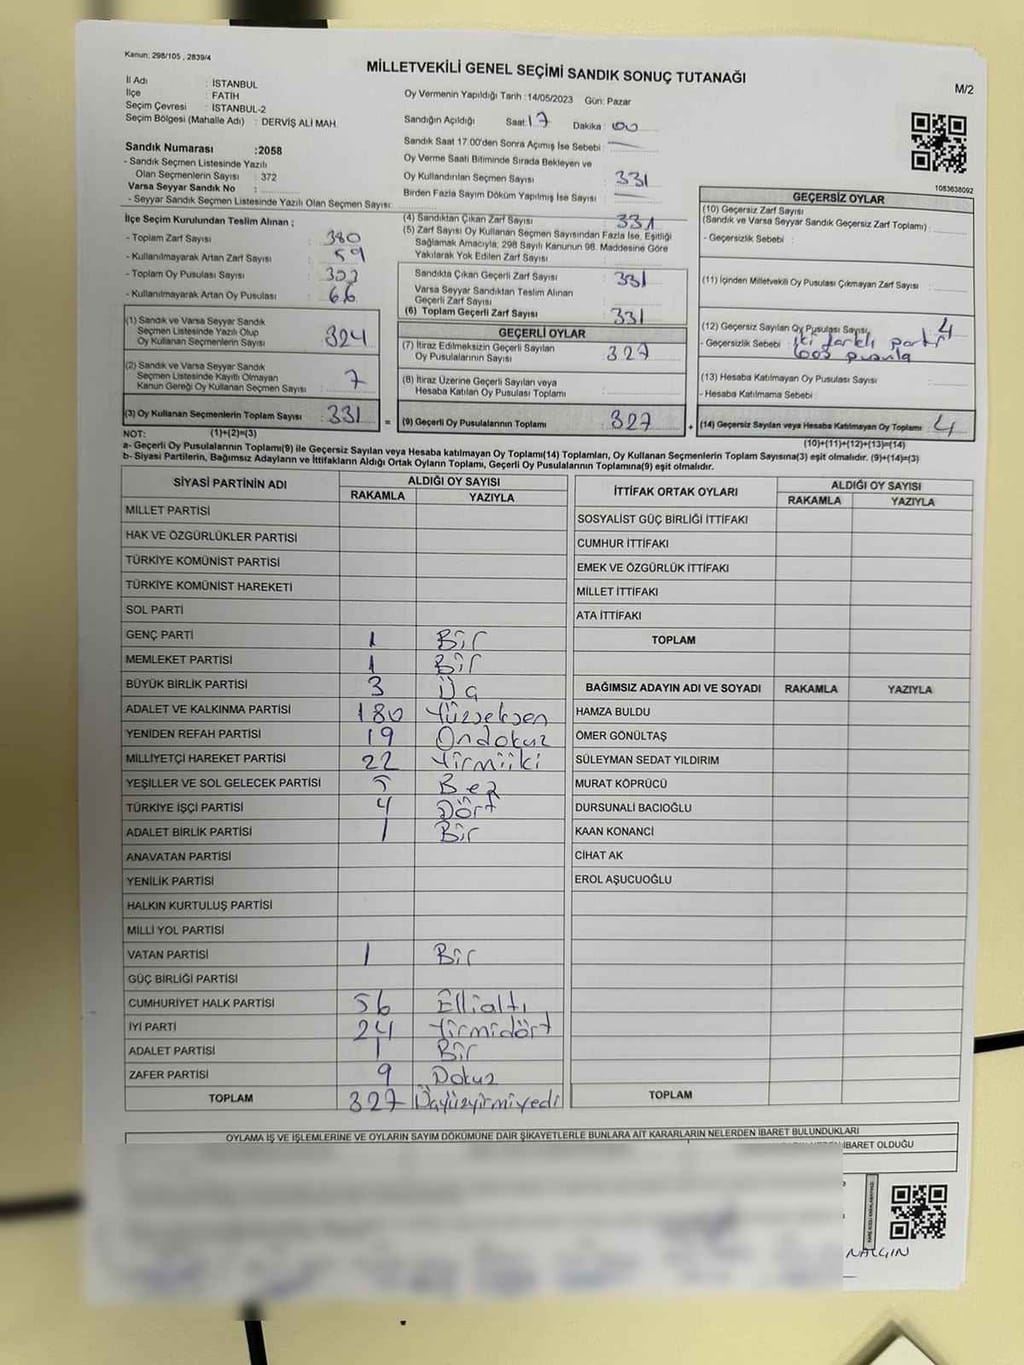 Kanun: 298/105 , 2839/4
MİLLETVEKİLİ GENEL SEÇİMİ SANDIK SONUÇ TUTANAĞI
M/2
İl Adı : İSTANBUL
İlçe : FATİH
Seçim Çevresi : İSTANBUL-2
Seçim Bölgesi (Mahalle Adı) : DERVİŞ ALİ MAH.
Oy Vermenin Yapıldığı Tarih :14/05/2023 Gün: Pazar
Sandığın Açıldığı Saat: 17 Dakika : 00
Sandık Saat 17.00'den Sonra Açımış İse Sebebi :
Oy Verme Saati Bitiminde Sırada Bekleyen ve
Oy Kullandırılan Seçmen Sayısı : 331
Birden Fazla Sayım Döküm Yapılmış İse Sayısı :
1083638092
Sandık Numarası :2058
- Sandık Seçmen Listesinde Yazılı
Olan Seçmenlerin Sayısı : 372
Varsa Seyyar Sandık No :
- Seyyar Sandık Seçmen Listesinde Yazılı Olan Seçmen Sayısı:
İlçe Seçim Kurulundan Teslim Alınan ;
- Toplam Zarf Sayısı : 380
- Kullanılmayarak Artan Zarf Sayısı : 59
- Toplam Oy Pusulası Sayısı :
- Kullanılmayarak Artan Oy Pusulası : 66
(1) Sandık ve Varsa Seyyar Sandık
Seçmen Listesinde Yazılı Olup
Oy Kullanan Seçmenlerin Sayısı : 324
(2) Sandık ve Varsa Seyyar Sandık
Seçmen Listesinde Kayıtlı Olmayan
Kanun Gereği Oy Kullanan Seçmen Sayısı : 7
(3) Oy Kullanan Seçmenlerin Toplam Sayısı : 331 =
(4) Sandıktan Çıkan Zarf Sayısı : 331
(5) Zarf Sayısı Oy Kullanan Seçmen Sayısından Fazla İse, Eşitliği
Sağlamak Amacıyla, 298 Sayılı Kanunun 98. Maddesine Göre
Yakılarak Yok Edilen Zarf Sayısı :
Sandıkta Çıkan Geçerli Zarf Sayısı : 331
Varsa Seyyar Sandıktan Teslim Alınan
Geçerli Zarf Sayısı :
(6) Toplam Geçerli Zarf Sayısı : 331
GEÇERLİ OYLAR
(7) İtiraz Edilmeksizin Geçerli Sayılan
Oy Pusulalarının Sayısı : 327
(8) İtiraz Üzerine Geçerli Sayılan veya
Hesaba Katılan Oy Pusulası Toplamı :
(9) Geçerli Oy Pusulalarının Toplamı : 327 +
GEÇERSİZ OYLAR
(10) Geçersiz Zarf Sayısı
(Sandık ve Varsa Seyyar Sandık Geçersiz Zarf Toplamı) :
- Geçersizlik Sebebi :
(11) İçinden Milletvekili Oy Pusulası Çıkmayan Zarf Sayısı :
(12) Geçersiz Sayılan Oy Pusulası Sayısı : 4
- Geçersizlik Sebebi : İki farklı parti
(13) Hesaba Katılmayan Oy Pusulası Sayısı :
- Hesaba Katılmama Sebebi :
(14) Geçersiz Sayılan veya Hesaba Katılmayan Oy Toplamı : 4
NOT: (1)+(2)=(3) (10)+(11)+(12)+(13)=(14)
a- Geçerli Oy Pusulalarının Toplamı(9) ile Geçersiz Sayılan veya Hesaba katılmayan Oy Toplamı(14) Toplamları, Oy Kullanan Seçmenlerin Toplam Sayısına(3) eşit olmalıdır. (9)+(14)=(3)
b- Siyasi Partilerin, Bağımsız Adayların ve İttifakların Aldığı Ortak Oyların Toplamı, Geçerli Oy Pusulalarının Toplamına(9) eşit olmalıdır.
SİYASİ PARTİNİN ADI ALDIĞI OY SAYISI
RAKAMLA YAZIYLA
MİLLET PARTİSİ
HAK VE ÖZGÜRLÜKLER PARTİSİ
TÜRKİYE KOMÜNİST PARTİSİ
TÜRKİYE KOMÜNİST HAREKETİ
SOL PARTİ
GENÇ PARTİ 1 Bir
MEMLEKET PARTİSİ 1 Bir
BÜYÜK BİRLİK PARTİSİ 3 Üç
ADALET VE KALKINMA PARTİSİ 180 Yüzseksen
YENİDEN REFAH PARTİSİ 19 Ondokuz
MİLLİYETÇİ HAREKET PARTİSİ 22 Yirmiiki
YEŞİLLER VE SOL GELECEK PARTİSİ 5 Beş
TÜRKİYE İŞÇİ PARTİSİ 4 Dört
ADALET BİRLİK PARTİSİ 1 Bir
ANAVATAN PARTİSİ
YENİLİK PARTİSİ
HALKIN KURTULUŞ PARTİSİ
MİLLİ YOL PARTİSİ
VATAN PARTİSİ 1 Bir
GÜÇ BİRLİĞİ PARTİSİ
CUMHURİYET HALK PARTİSİ 56 Ellialtı
İYİ PARTİ 24 Yirmidört
ADALET PARTİSİ 1 Bir
ZAFER PARTİSİ 9 Dokuz
TOPLAM 327 Üçyüzyirmiyedi
İTTİFAK ORTAK OYLARI ALDIĞI OY SAYISI
RAKAMLA YAZIYLA
SOSYALİST GÜÇ BİRLİĞİ İTTİFAKI
CUMHUR İTTİFAKI
EMEK VE ÖZGÜRLÜK İTTİFAKI
MİLLET İTTİFAKI
ATA İTTİFAKI
TOPLAM
BAĞIMSIZ ADAYIN ADI VE SOYADI RAKAMLA YAZIYLA
HAMZA BULDU
ÖMER GÖNÜLTAŞ
SÜLEYMAN SEDAT YILDIRIM
MURAT KÖPRÜCÜ
DURSUNALİ BACIOĞLU
KAAN KONANCİ
CİHAT AK
EROL AŞUCUOĞLU
TOPLAM
OYLAMA İŞ VE İŞLEMLERİNE VE OYLARIN SAYIM DÖKÜMÜNE DAİR ŞİKAYETLERLE BUNLARA AİT KARARLARIN NELERDEN İBARET BULUNDUKLARI
İBARET OLDUĞU
NALGIN